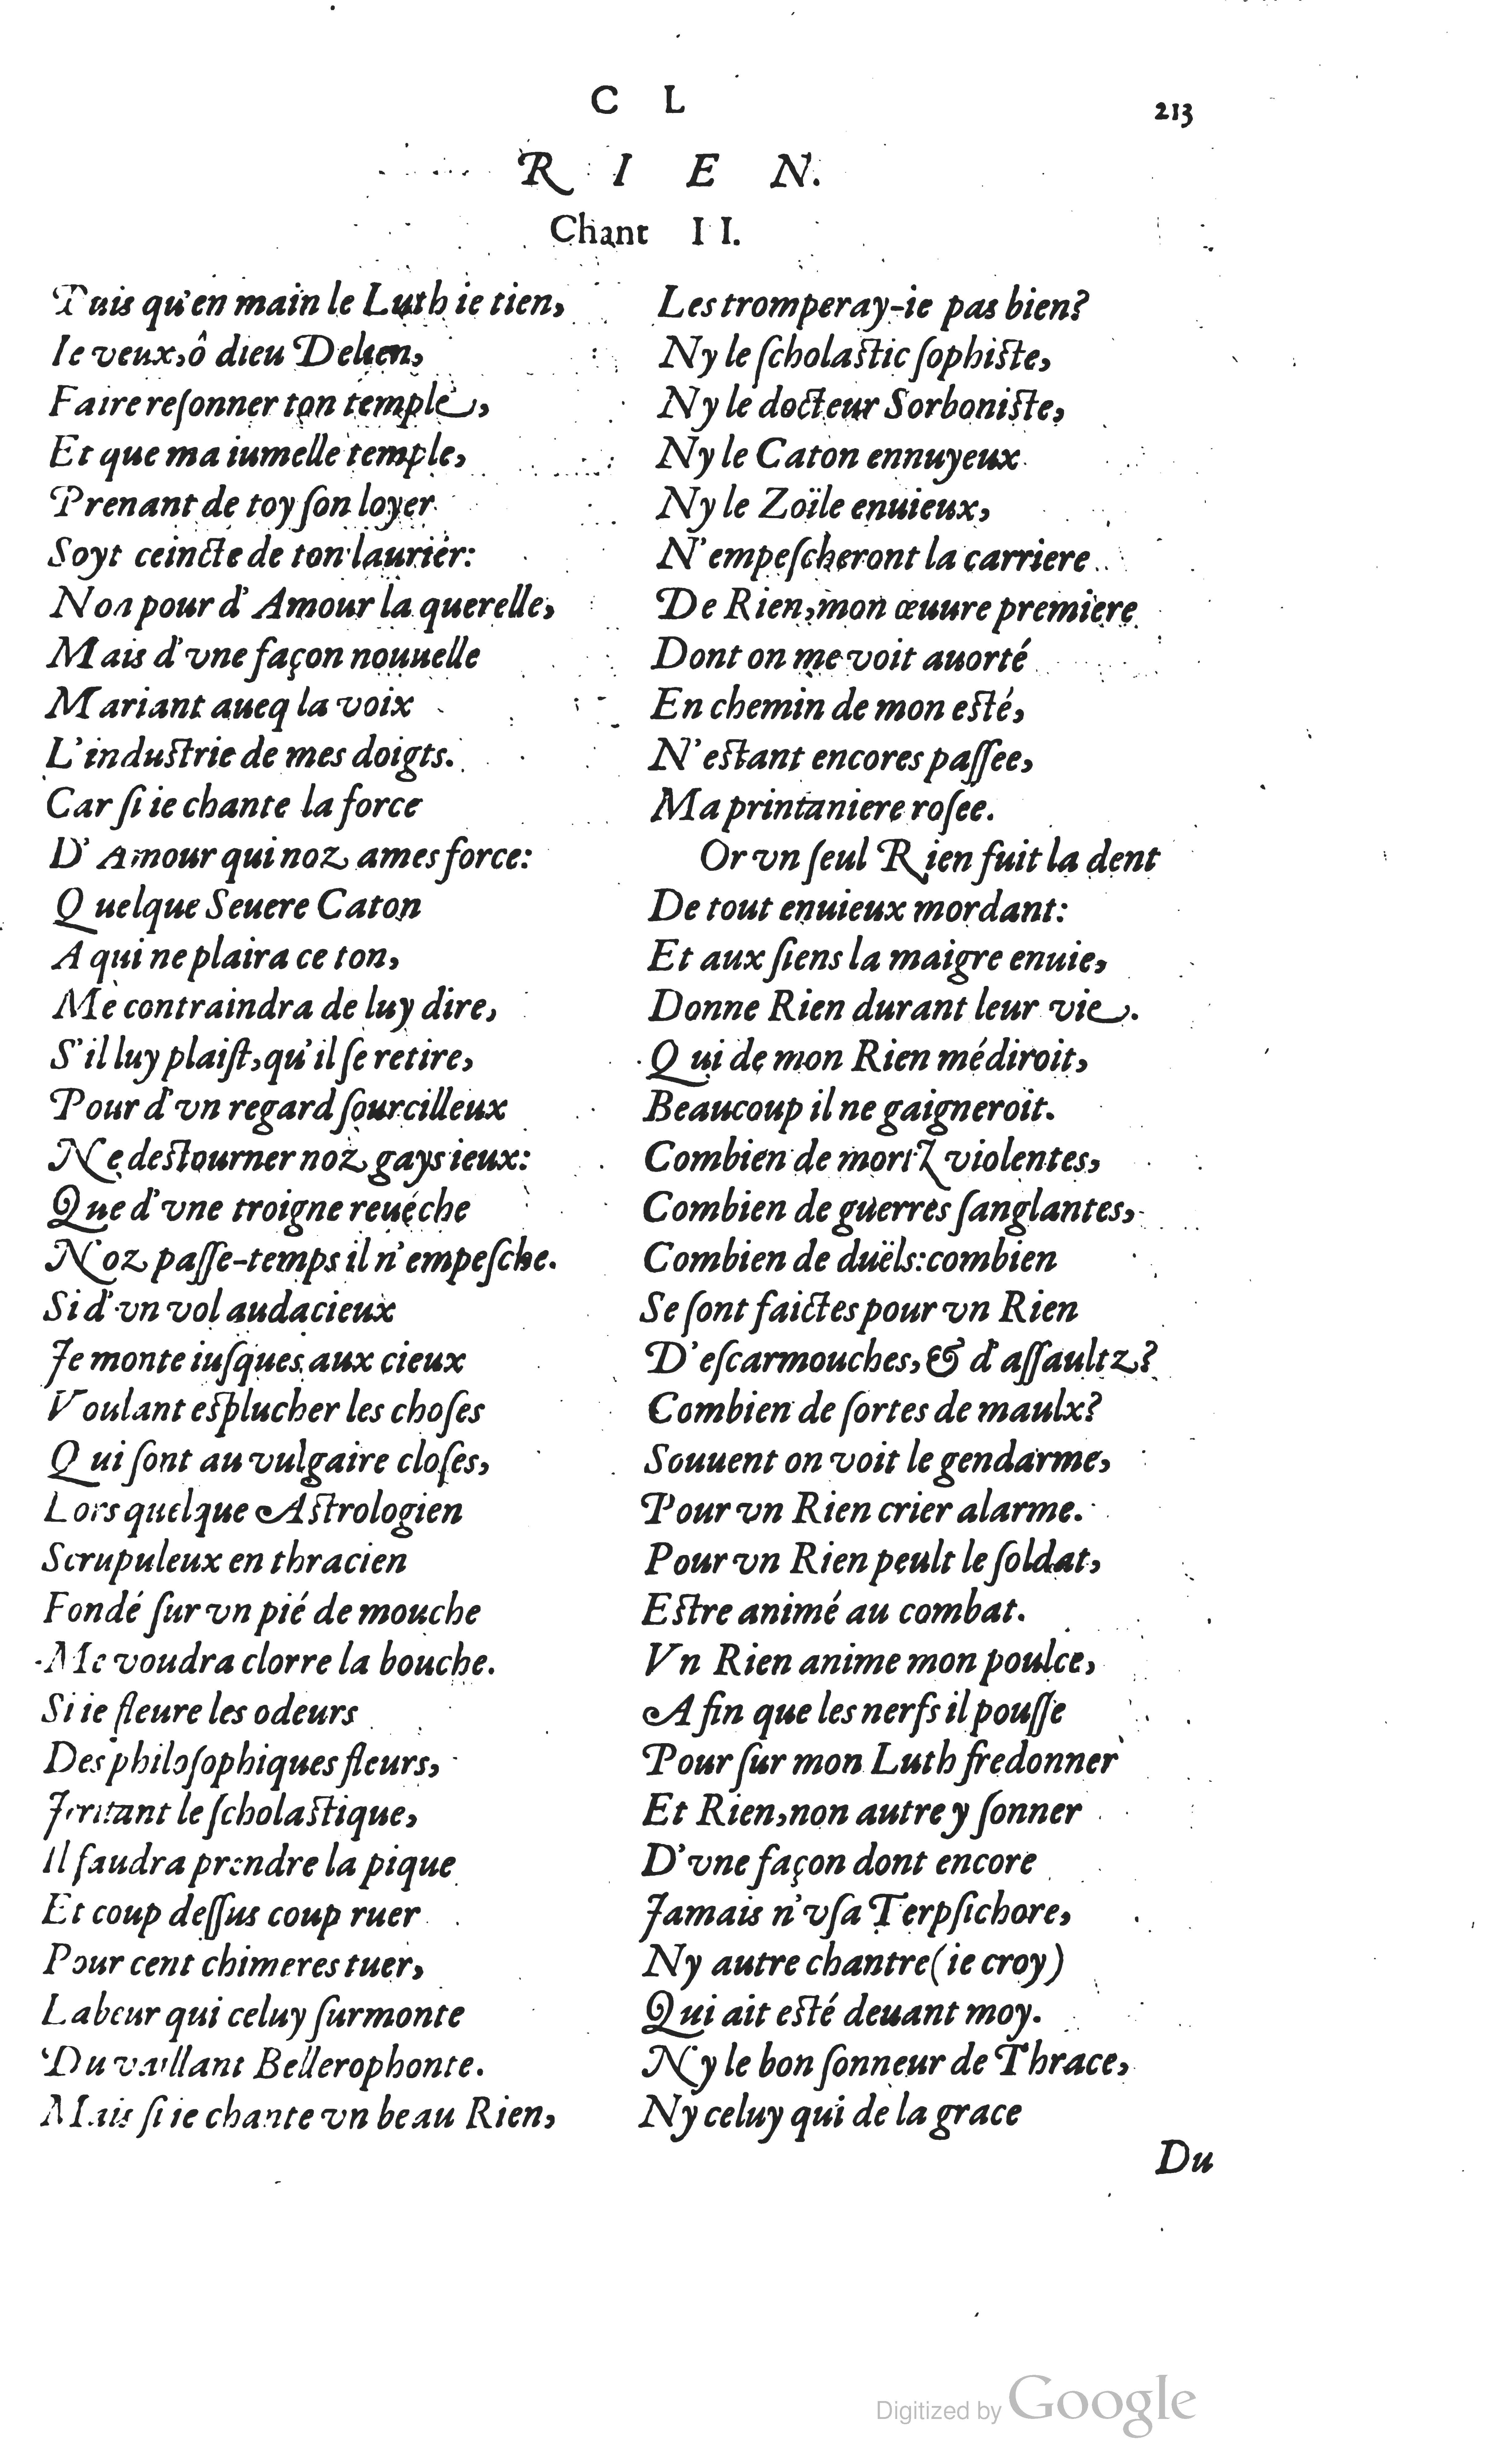 C L
213
RIEN.
Chant II.
Puis qu'en main le Luth ie tien,
Ie veux, ô dieu Delien,
Faire reſonner ton temple,
Et que ma iumelle temple,
Prenant de toy ſon loyer
Soyt ceincte de ton laurier:
Non pour d'Amour la querelle,
Mais d'vne façon nouuelle
Mariant aueq la voix
L'induſtrie de mes doigts.
Car ſi ie chante la force
D'Amour qui noz ames force:
Quelque Seuere Caton
A qui ne plaira ce ton,
Me contraindra de luy dire,
S'il luy plaiſt, qu'il ſe retire,
Pour d'vn regard ſourcilleux
Ne deſtourner noz gays ieux:
Que d'vne troigne reuéche
Noz paſſe-temps il n'empeſche.
Si d'vn vol audacieux
Je monte iuſques aux cieux
Voulant eſplucher les choſes
Qui ſont au vulgaire cloſes,
Lors quelque Aſtrologien
Scrupuleux en thracien
Fondé ſur vn pié de mouche
Me voudra clorre la bouche.
Si ie fleure les odeurs
Des philoſophiques fleurs,
Jrritant le ſcholaſtique,
Il faudra prendre la pique
Et coup deſſus coup ruer
Pour cent chimeres tuer,
Labeur qui celuy ſurmonte
Du vaillant Bellerophonte.
Mais ſi ie chante vn beau Rien,
Les tromperay-ie pas bien?
Ny le ſcholaſtic ſophiſte,
Ny le docteur Sorboniſte,
Ny le Caton ennuyeux
Ny le Zoïle enuieux,
N'empeſcheront la carriere
De Rien, mon œuure premiere
Dont on me voit auorté
En chemin de mon eſté,
N'eſtant encores paſſee,
Ma printaniere roſee.
Or vn ſeul Rien fuit la dent
De tout enuieux mordant:
Et aux ſiens la maigre enuie,
Donne Rien durant leur vie.
Qui de mon Rien médiroit,
Beaucoup il ne gaigneroit.
Combien de mortz violentes,
Combien de guerres ſanglantes,
Combien de duëls: combien
Se ſont faictes pour vn Rien
D'eſcarmouches, & d'aſſaultz?
Combien de ſortes de maulx?
Souuent on voit le gendarme,
Pour vn Rien crier alarme.
Pour vn Rien peult le ſoldat,
Eſtre animé au combat.
Vn Rien anime mon poulce,
Afin que les nerfs il pouſſe
Pour ſur mon Luth fredonner
Et Rien, non autre y ſonner
D'vne façon dont encore
Jamais n'vſa Terpſichore,
Ny autre chantre (ie croy)
Qui ait eſté deuant moy.
Ny le bon ſonneur de Thrace,
Ny celuy qui de la grace
Du
Digitized by Google